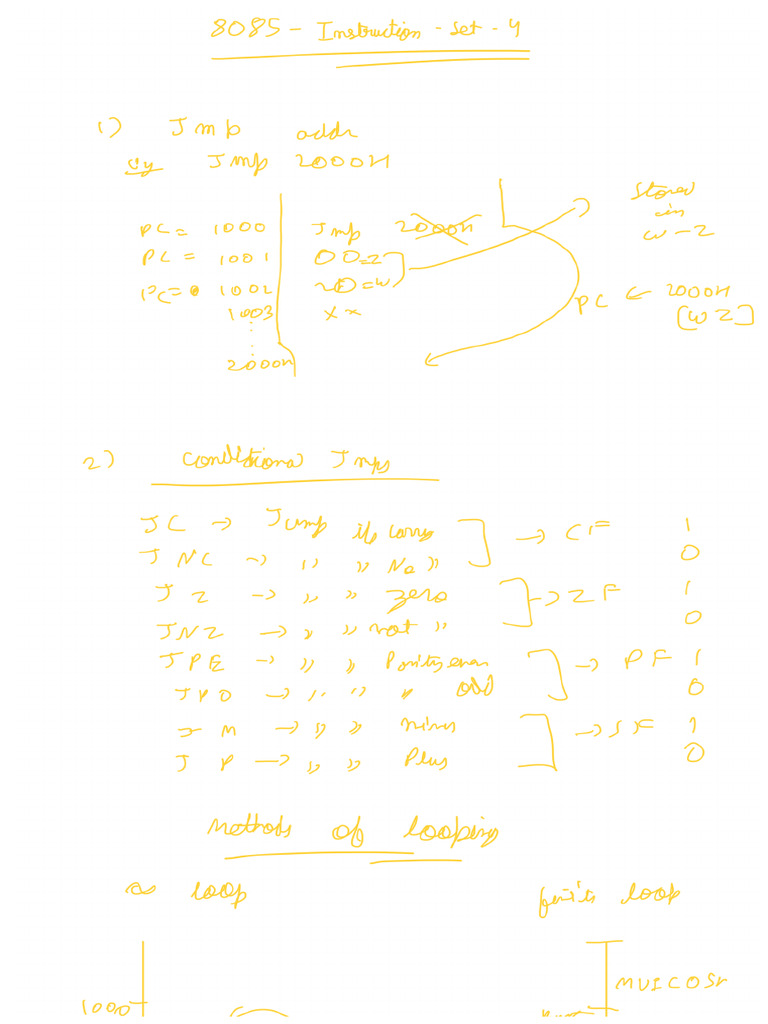 8085 - Instruction - Set - 4
1) Jmp addr
eg Jmp 2000H
PC = 1000 Jmp 2000H
PC = 1001 00 = Z
PC = 1002 20 = W
1003 X X
2000H
Stored
in
W - Z
PC ← 2000H
[W Z]
2) Conditional Jmps
JC → Jump if carry → CF 1
JNC → " " No " 0
JZ → " " zero → ZF 1
JNZ → " " not " 0
JPE → " " Parity even → PF 1
JPO → " " " odd 0
JM → " " minus → SF 1
JP → " " Plus 0
Methods of looping
∞ loop finite loop
1000 MVI C 05H